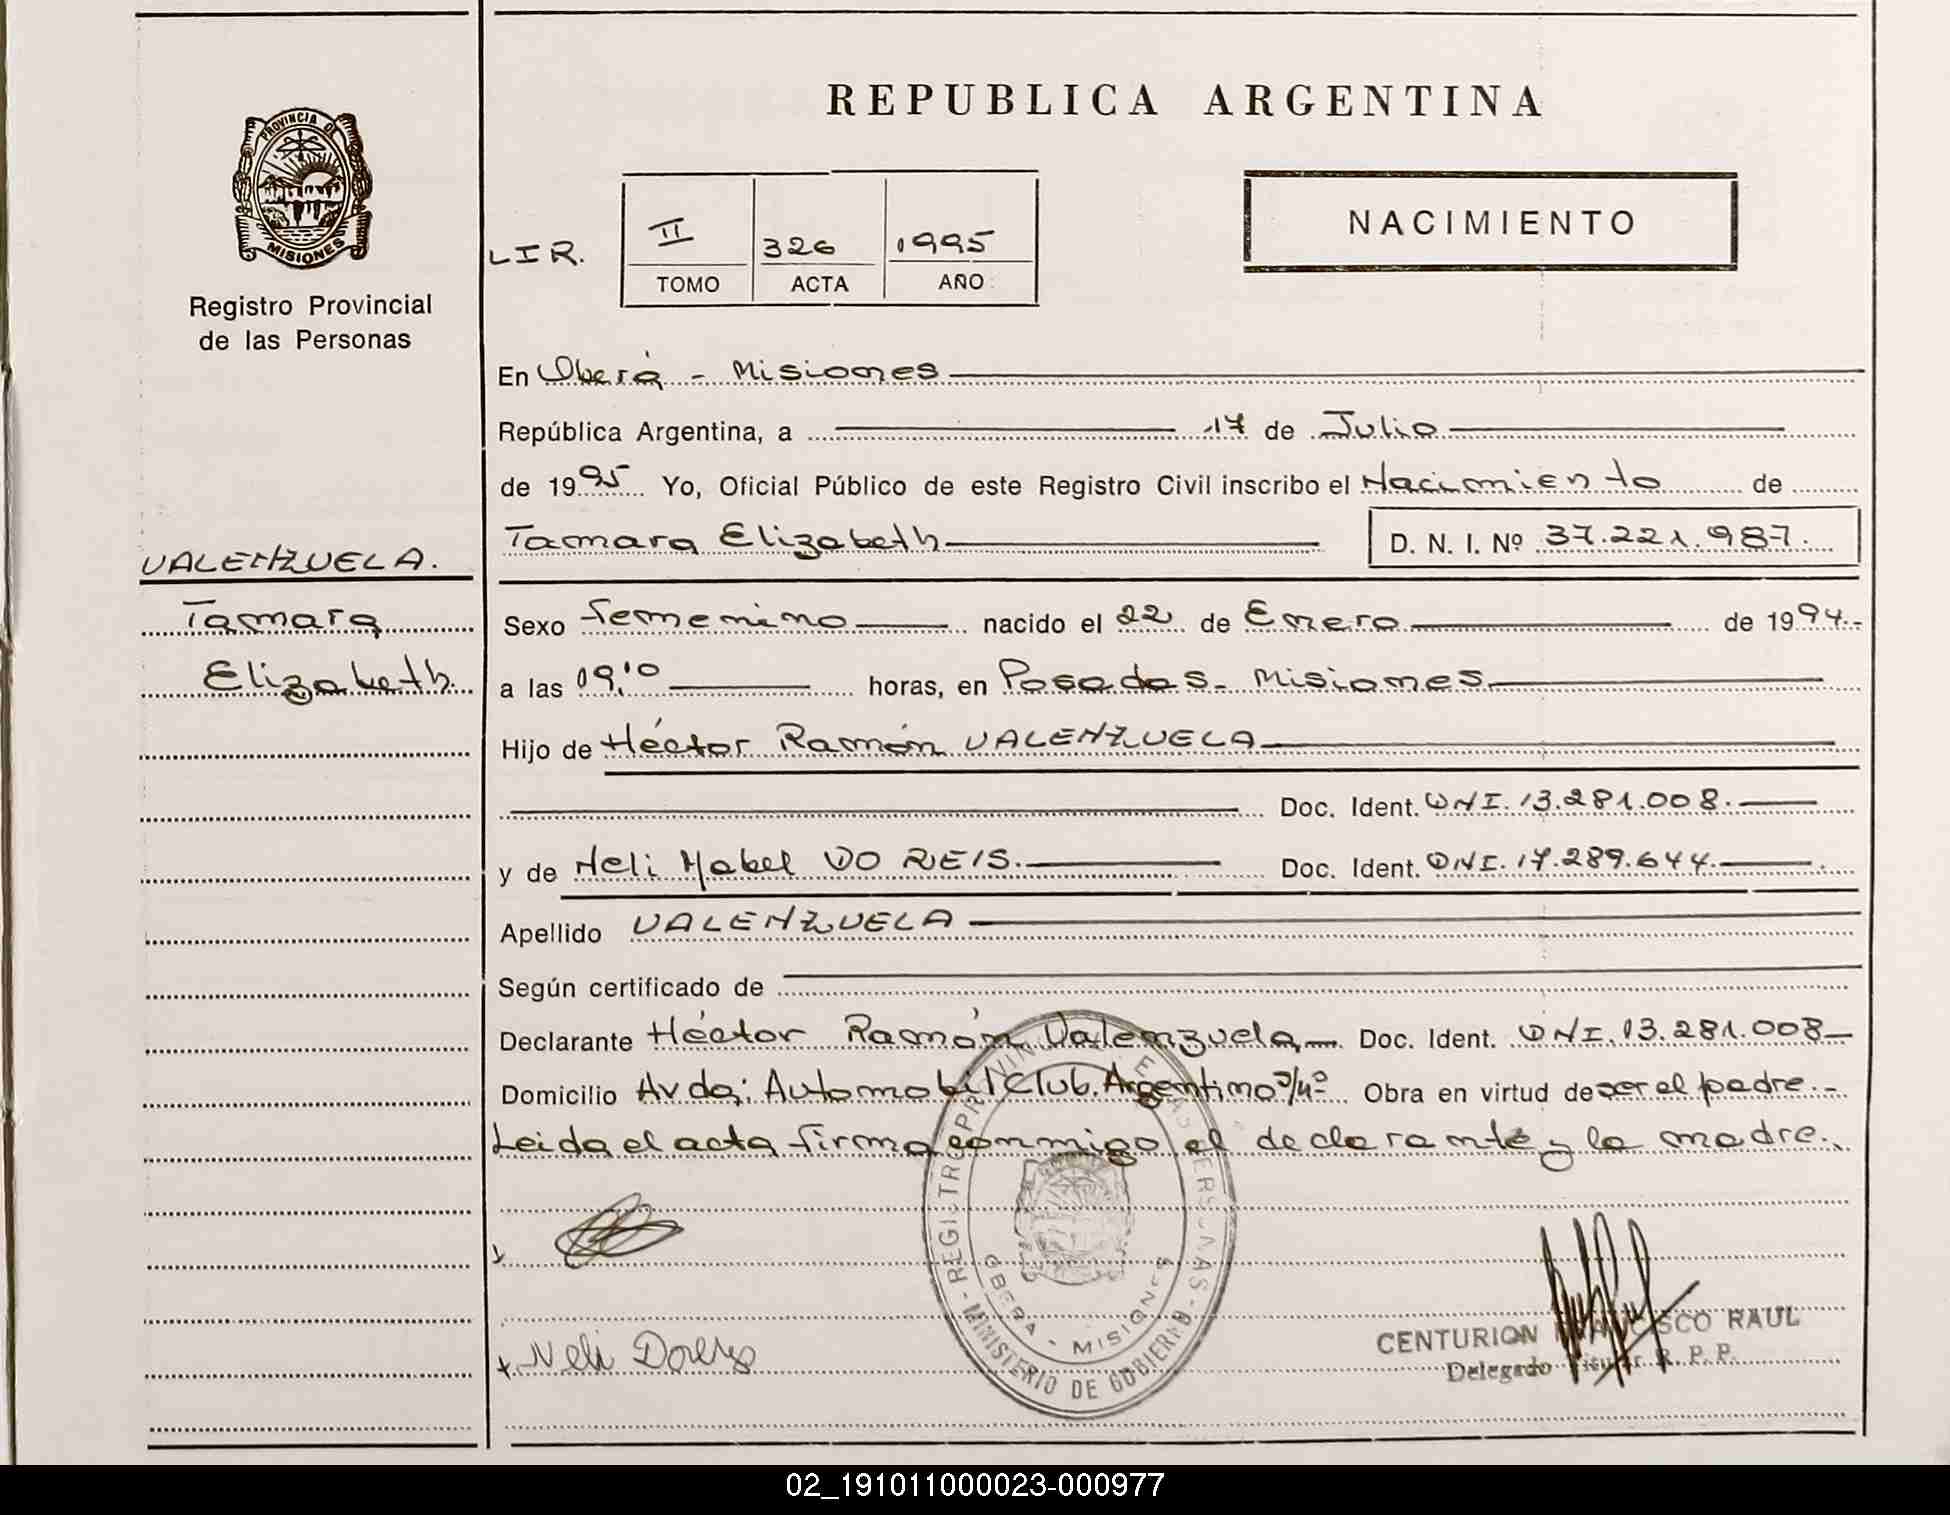 REPUBLICA ARGENTINA
PROVINCIA DE
MISIONES
Registro Provincial
de las Personas
LIR.
II 326 1995
TOMO ACTA AÑO
NACIMIENTO
En Oberá - Misiones
República Argentina, a 17 de Julio
de 1995 Yo, Oficial Público de este Registro Civil inscribo el Nacimiento de
Tamara Elizabeth D. N. I. Nº 37.221.987.
VALENZUELA.
Tamara
Elizabeth.
Sexo femenino nacido el 22 de Enero de 1994.-
a las 09,10 horas, en Posadas - Misiones
Hijo de Héctor Ramón VALENZUELA
Doc. Ident. DNI. 13.281.008.
y de Neli Mabel DO REIS. Doc. Ident. DNI. 17.289.644.
Apellido VALENZUELA
Según certificado de
Declarante Héctor Ramón Valenzuela Doc. Ident. DNI. 13.281.008
Domicilio Avda: Automobil Club. Argentino s/nº Obra en virtud de ser el padre.-
Leida el acta firma conmigo el declarante y la madre.
REGISTRO PROVINCIAL DE LAS PERSONAS
OBERA - MISIONES
MINISTERIO DE GOBIERNO
CENTURION FRANCISCO RAUL
Delegado Titular R. P. P.
02_191011000023-000977